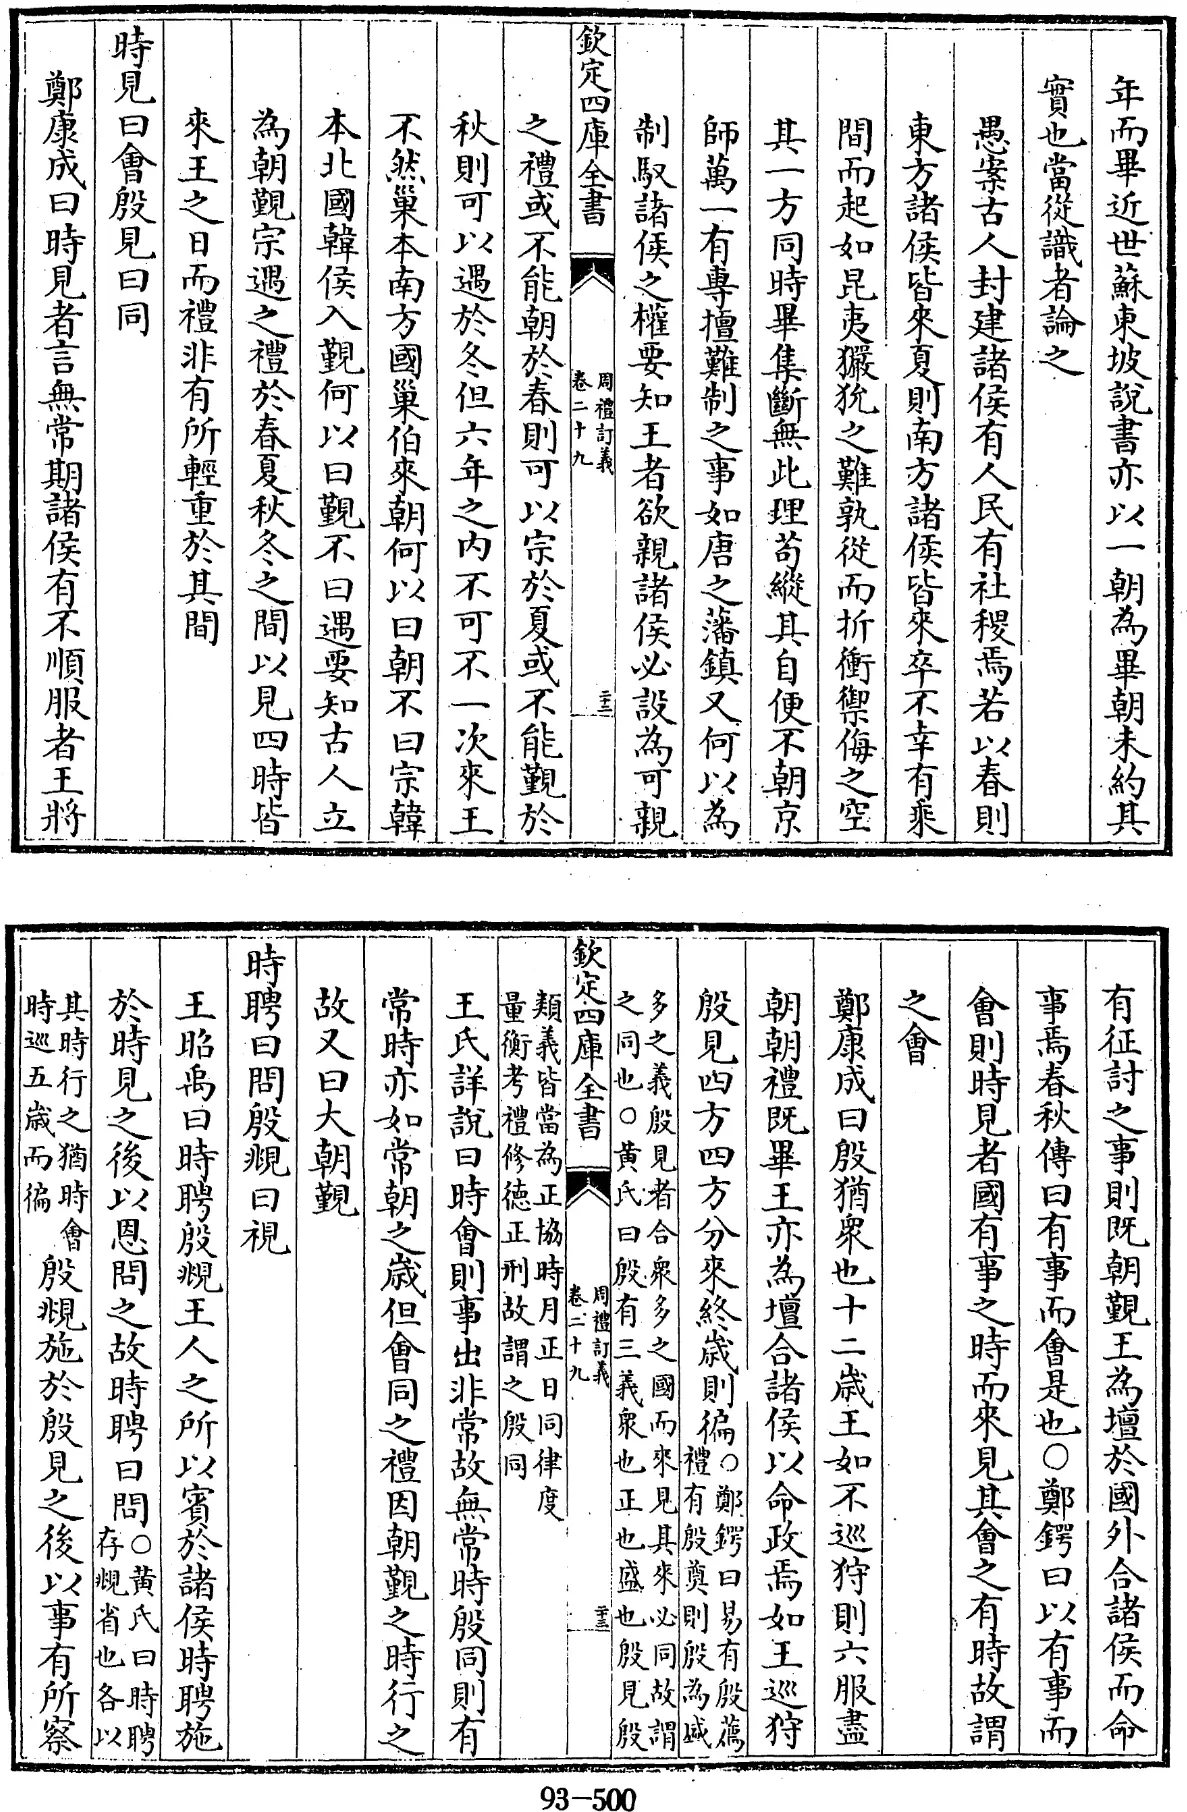 年而畢近世蘇東坡説書亦以一朝為畢朝未約其
實也當從識者論之
愚案古人封建諸侯有人民有社稷焉若以春則
東方諸侯皆來夏則南方諸侯皆來卒不幸有乘
間而起如昆夷玁狁之難孰從而折衝禦侮之空
其一方同時畢集斷無此理苟縱其自便不朝京
師萬一有專擅難制之事如唐之藩鎮又何以為
制馭諸侯之權要知王者欲親諸侯必設為可親
欽定四庫全書
周禮訂義
卷二十九
二十二
之禮或不能朝於春則可以宗於夏或不能覲於
秋則可以遇於冬但六年之内不可不一次來王
不然巢本南方國巢伯來朝何以曰朝不曰宗韓
本北國韓侯入覲何以曰覲不曰遇要知古人立
為朝覲宗遇之禮於春夏秋冬之間以見四時皆
來王之日而禮非有所輕重於其間
時見曰會殷見曰同
鄭康成曰時見者言無常期諸侯有不順服者王將
有征討之事則既朝覲王為壇於國外合諸侯而命
事焉春秋傳曰有事而會是也○鄭鍔曰以有事而
會則時見者國有事之時而來見其會之有時故謂
之會
鄭康成曰殷猶衆也十二歲王如不巡狩則六服盡
朝朝禮既畢王亦為壇合諸侯以命政焉如王巡狩
殷見四方四方分來終歲則徧○鄭鍔曰易有殷薦
禮有殷奠則殷為盛
多之義殷見者合衆多之國而來見其來必同故謂
之同也○黄氏曰殷有三義衆也正也盛也殷見殷
欽定四庫全書
周禮訂義
卷二十九
二十三
類義皆當為正協時月正日同律度
量衡考禮修德正刑故謂之殷同
王氏詳説曰時會則事出非常故無常時殷同則有
常時亦如常朝之歲但會同之禮因朝覲之時行之
故又曰大朝覲
時聘曰問殷覜曰視
王昭禹曰時聘殷覜王人之所以賓於諸侯時聘施
於時見之後以恩問之故時聘曰問○黄氏曰時聘
存覜省也各以
其時行之猶時會
時巡五歲而徧
殷覜施於殷見之後以事有所察
93-500